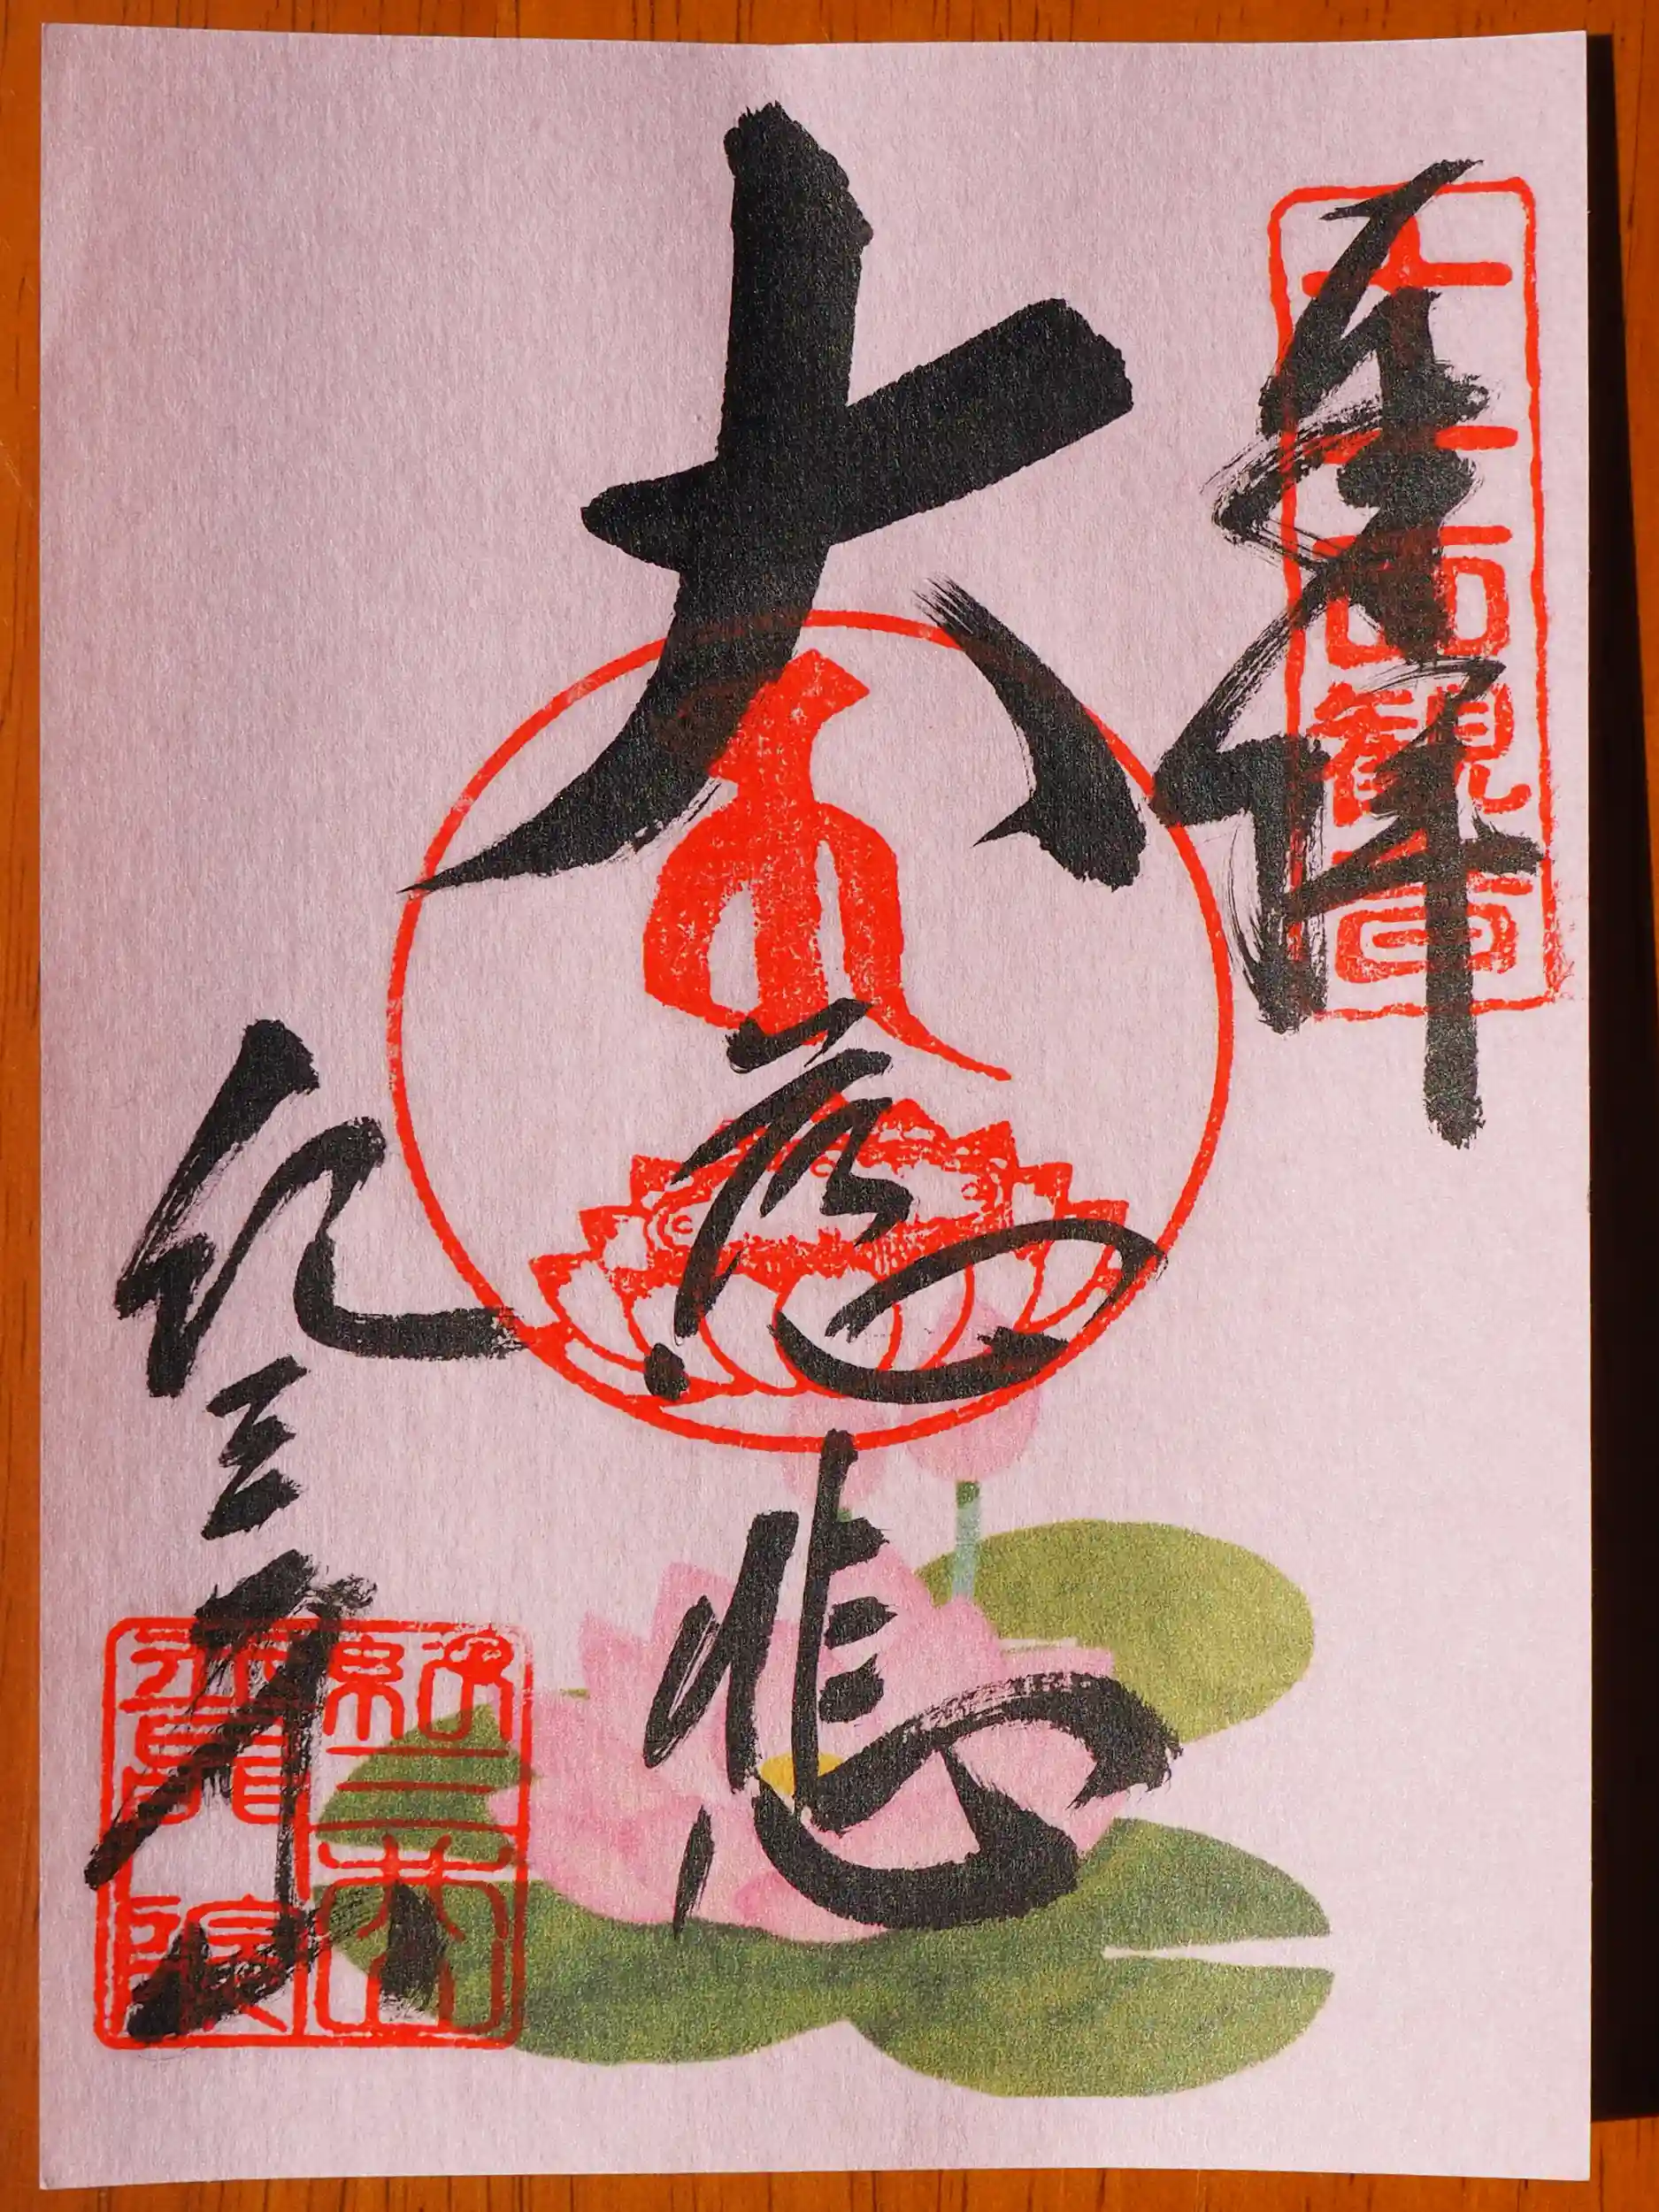 奉拝
十一面観音
大慈悲
紀三井山
紀三井山